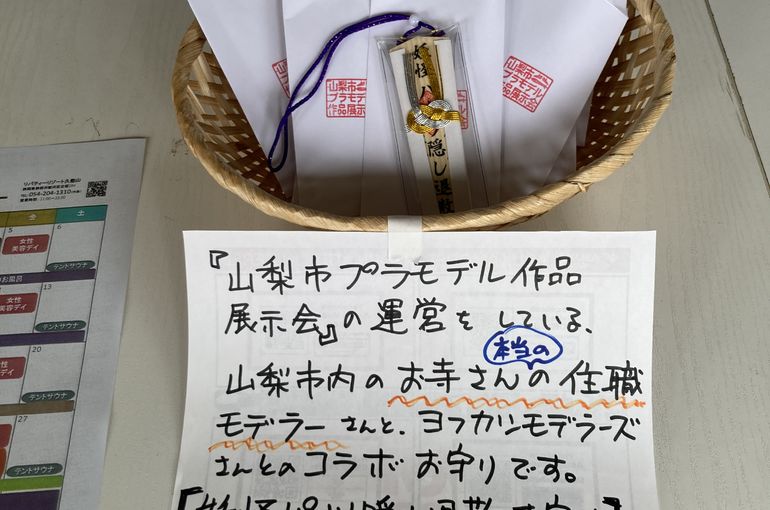 山梨市
プラモデル
作品展示会
山梨市
プラモデル
作品展示会
隠し退散
リバティーリゾート久能山
TEL:054-204-1310
金
土
5
6
女性
美容デイ
テントサウナ
お風呂
女性
美容デイ
13
テントサウナ
女性
美容デイ
20
テントサウナ
27
テントサウナ
『山梨市プラモデル作品
展示会』の運営をしている、
本当の
山梨市内のお寺さんの住職
モデラーさんと、ヨフカシモデラーズ
さんとのコラボお守りです。